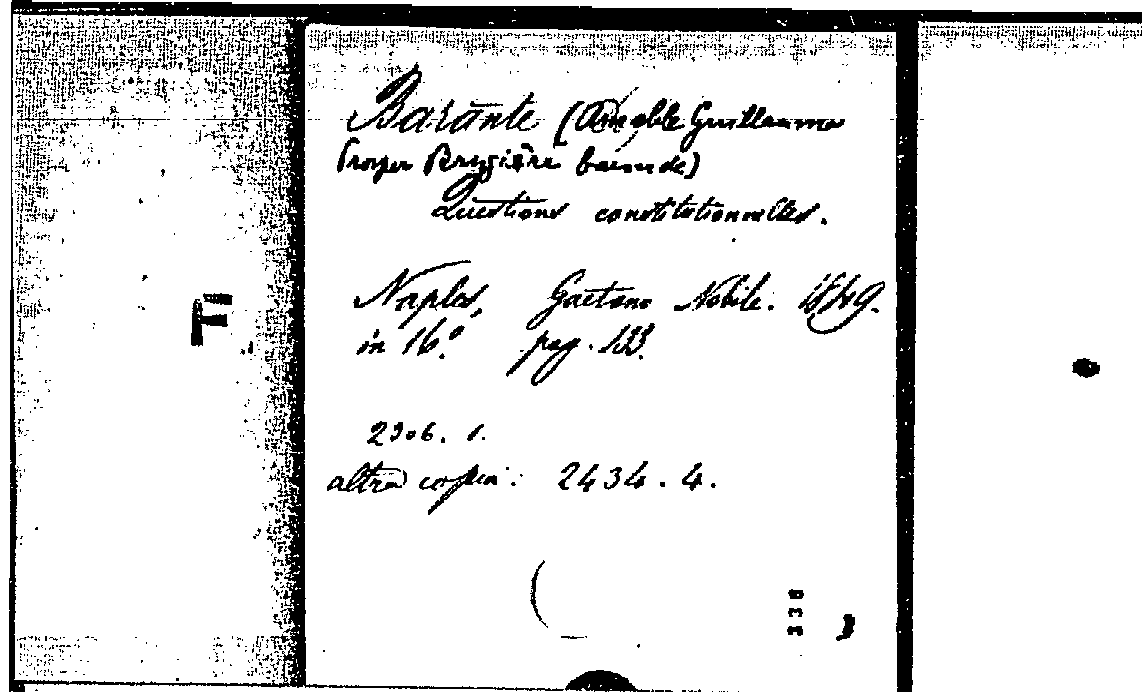 Barante (Amable Guillaume
Prosper Brugière baron de)
Questions constitutionnelles.
Naples, Gaetano Nobile. 1849.
in 16.° pag. 133.
2306. 1.
altra copia: 2434. 4.